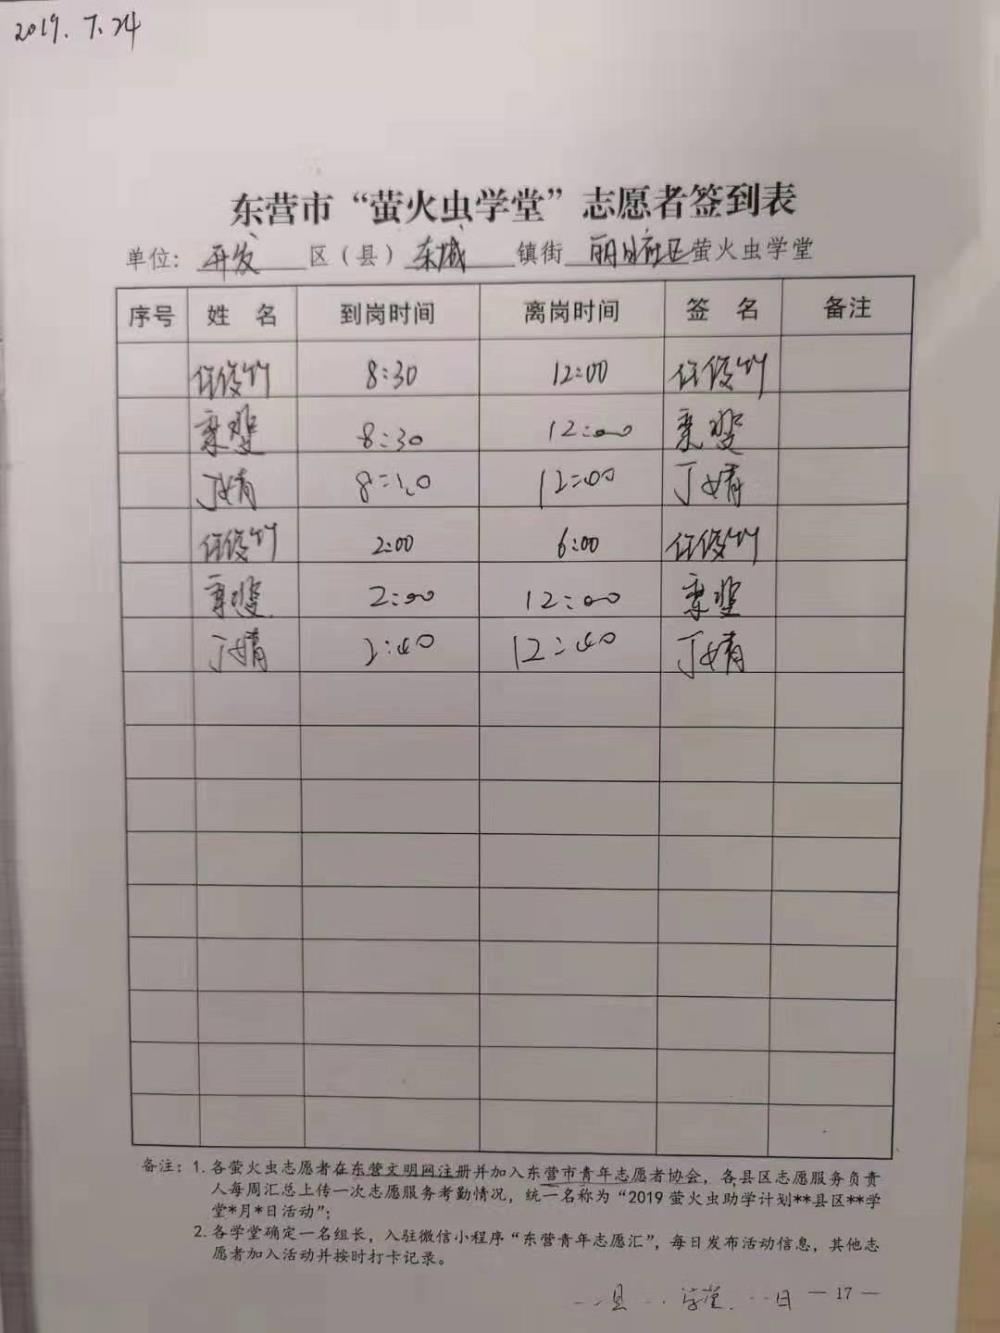 2019.7.24
东营市“萤火虫学堂”志愿者签到表
单位: 开发 区(县) 东城 镇街 丽水社区萤火虫学堂
序号 姓 名 到岗时间 离岗时间 签 名 备注
任俊竹 8:30 12:00 任俊竹
8:30 12:00
丁婧 8:20 12:00 丁婧
任俊竹 2:00 6:00 任俊竹
2:00 12:00
丁婧 2:40 12:40 丁婧
备注: 1. 各萤火虫志愿者在东营文明网注册并加入东营市青年志愿者协会，各县区志愿服务负责
人每周汇总上传一次志愿服务考勤情况，统一名称为“2019 萤火虫助学计划**县区**学
堂*月*日活动”;
2. 各学堂确定一名组长，入驻微信小程序“东营青年志愿汇”，每日发布活动信息，其他志
愿者加入活动并按时打卡记录。
县 学堂 日 — 17 —